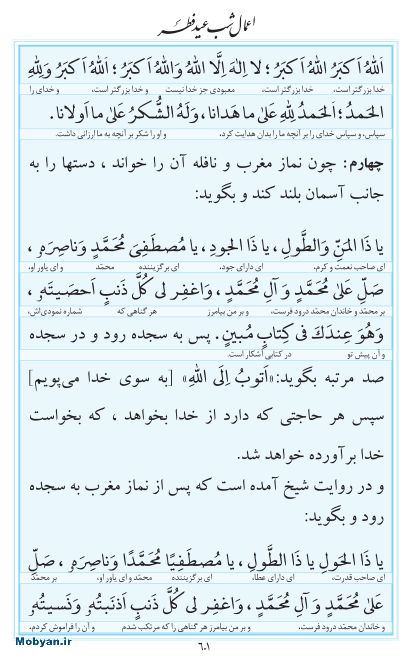 اعمال شب عید فطر
اَللهُ اَکبَرُ اَللهُ اَکبَرُ؛ لا اِلٰهَ اِلَّا اللهُ وَاللهُ اَکبَرُ؛ اَللهُ اَکبَرُ وَلِلّٰهِ
خدا بزرگتر است، خدا بزرگتر است، معبودی جز خدا نیست و خدا بزرگتر است، خدا بزرگتر است، و خدای را
الحَمدُ؛ اَلحَمدُ لِلّٰهِ عَلیٰ ما هَدانا، وَلَهُ الشُّکرُ عَلیٰ ما اَولانا.
سپاس، و سپاس خدای را بر آنچه ما را بدان هدایت کرد، و او را شکر بر آنچه به ما ارزانی داشت.
چهارم: چون نماز مغرب و نافله آن را خواند ، دستها را به
جانب آسمان بلند کند و بگوید:
یا ذَا المَنِّ وَالطَّولِ، یا ذَا الجودِ، یا مُصطَفِیَ مُحَمَّدٍ وَناصِرَهٗ ،
ای صاحب نعمت و کرم، ای دارای جود، ای برگزیننده محمّد و ای یاور او،
صَلِّ عَلیٰ مُحَمَّدٍ وَ آلِ مُحَمَّدٍ، وَاغفِر لی کُلَّ ذَنبٍ اَحصَیتَهٗ ،
بر محمّد و خاندان محمّد درود فرست، و بر من بیامرز هر گناهی که شماره نمودی‌اش،
وَهُوَ عِندَكَ فی کِتابٍ مُبینٍ. پس به سجده رود و در سجده
و آن پیش تو در کتابی آشکار است.
صد مرتبه بگوید: «اَتوبُ اِلَی اللهِ» [به سوی خدا می‌پویم]
سپس هر حاجتی که دارد از خدا بخواهد ، که بخواست
خدا برآورده خواهد شد.
و در روایت شیخ آمده است که پس از نماز مغرب به سجده
رود و بگوید:
یا ذَا الحَولِ یا ذَا الطَّولِ، یا مُصطَفِیًا مُحَمَّدًا وَناصِرَهٗ ، صَلِّ
ای صاحب قدرت، ای دارای عطا، ای برگزیننده محمّد و ای یاور او، بر محمّد
عَلیٰ مُحَمَّدٍ وَ آلِ مُحَمَّدٍ، وَاغفِر لی کُلَّ ذَنبٍ اَذنَبتُهٗ وَنَسیتُهٗ
و خاندان محمّد درود فرست، و بر من بیامرز هر گناهی را که مرتکب شدم و آن را فراموش کردم،
Mobyan.ir
٦٠١